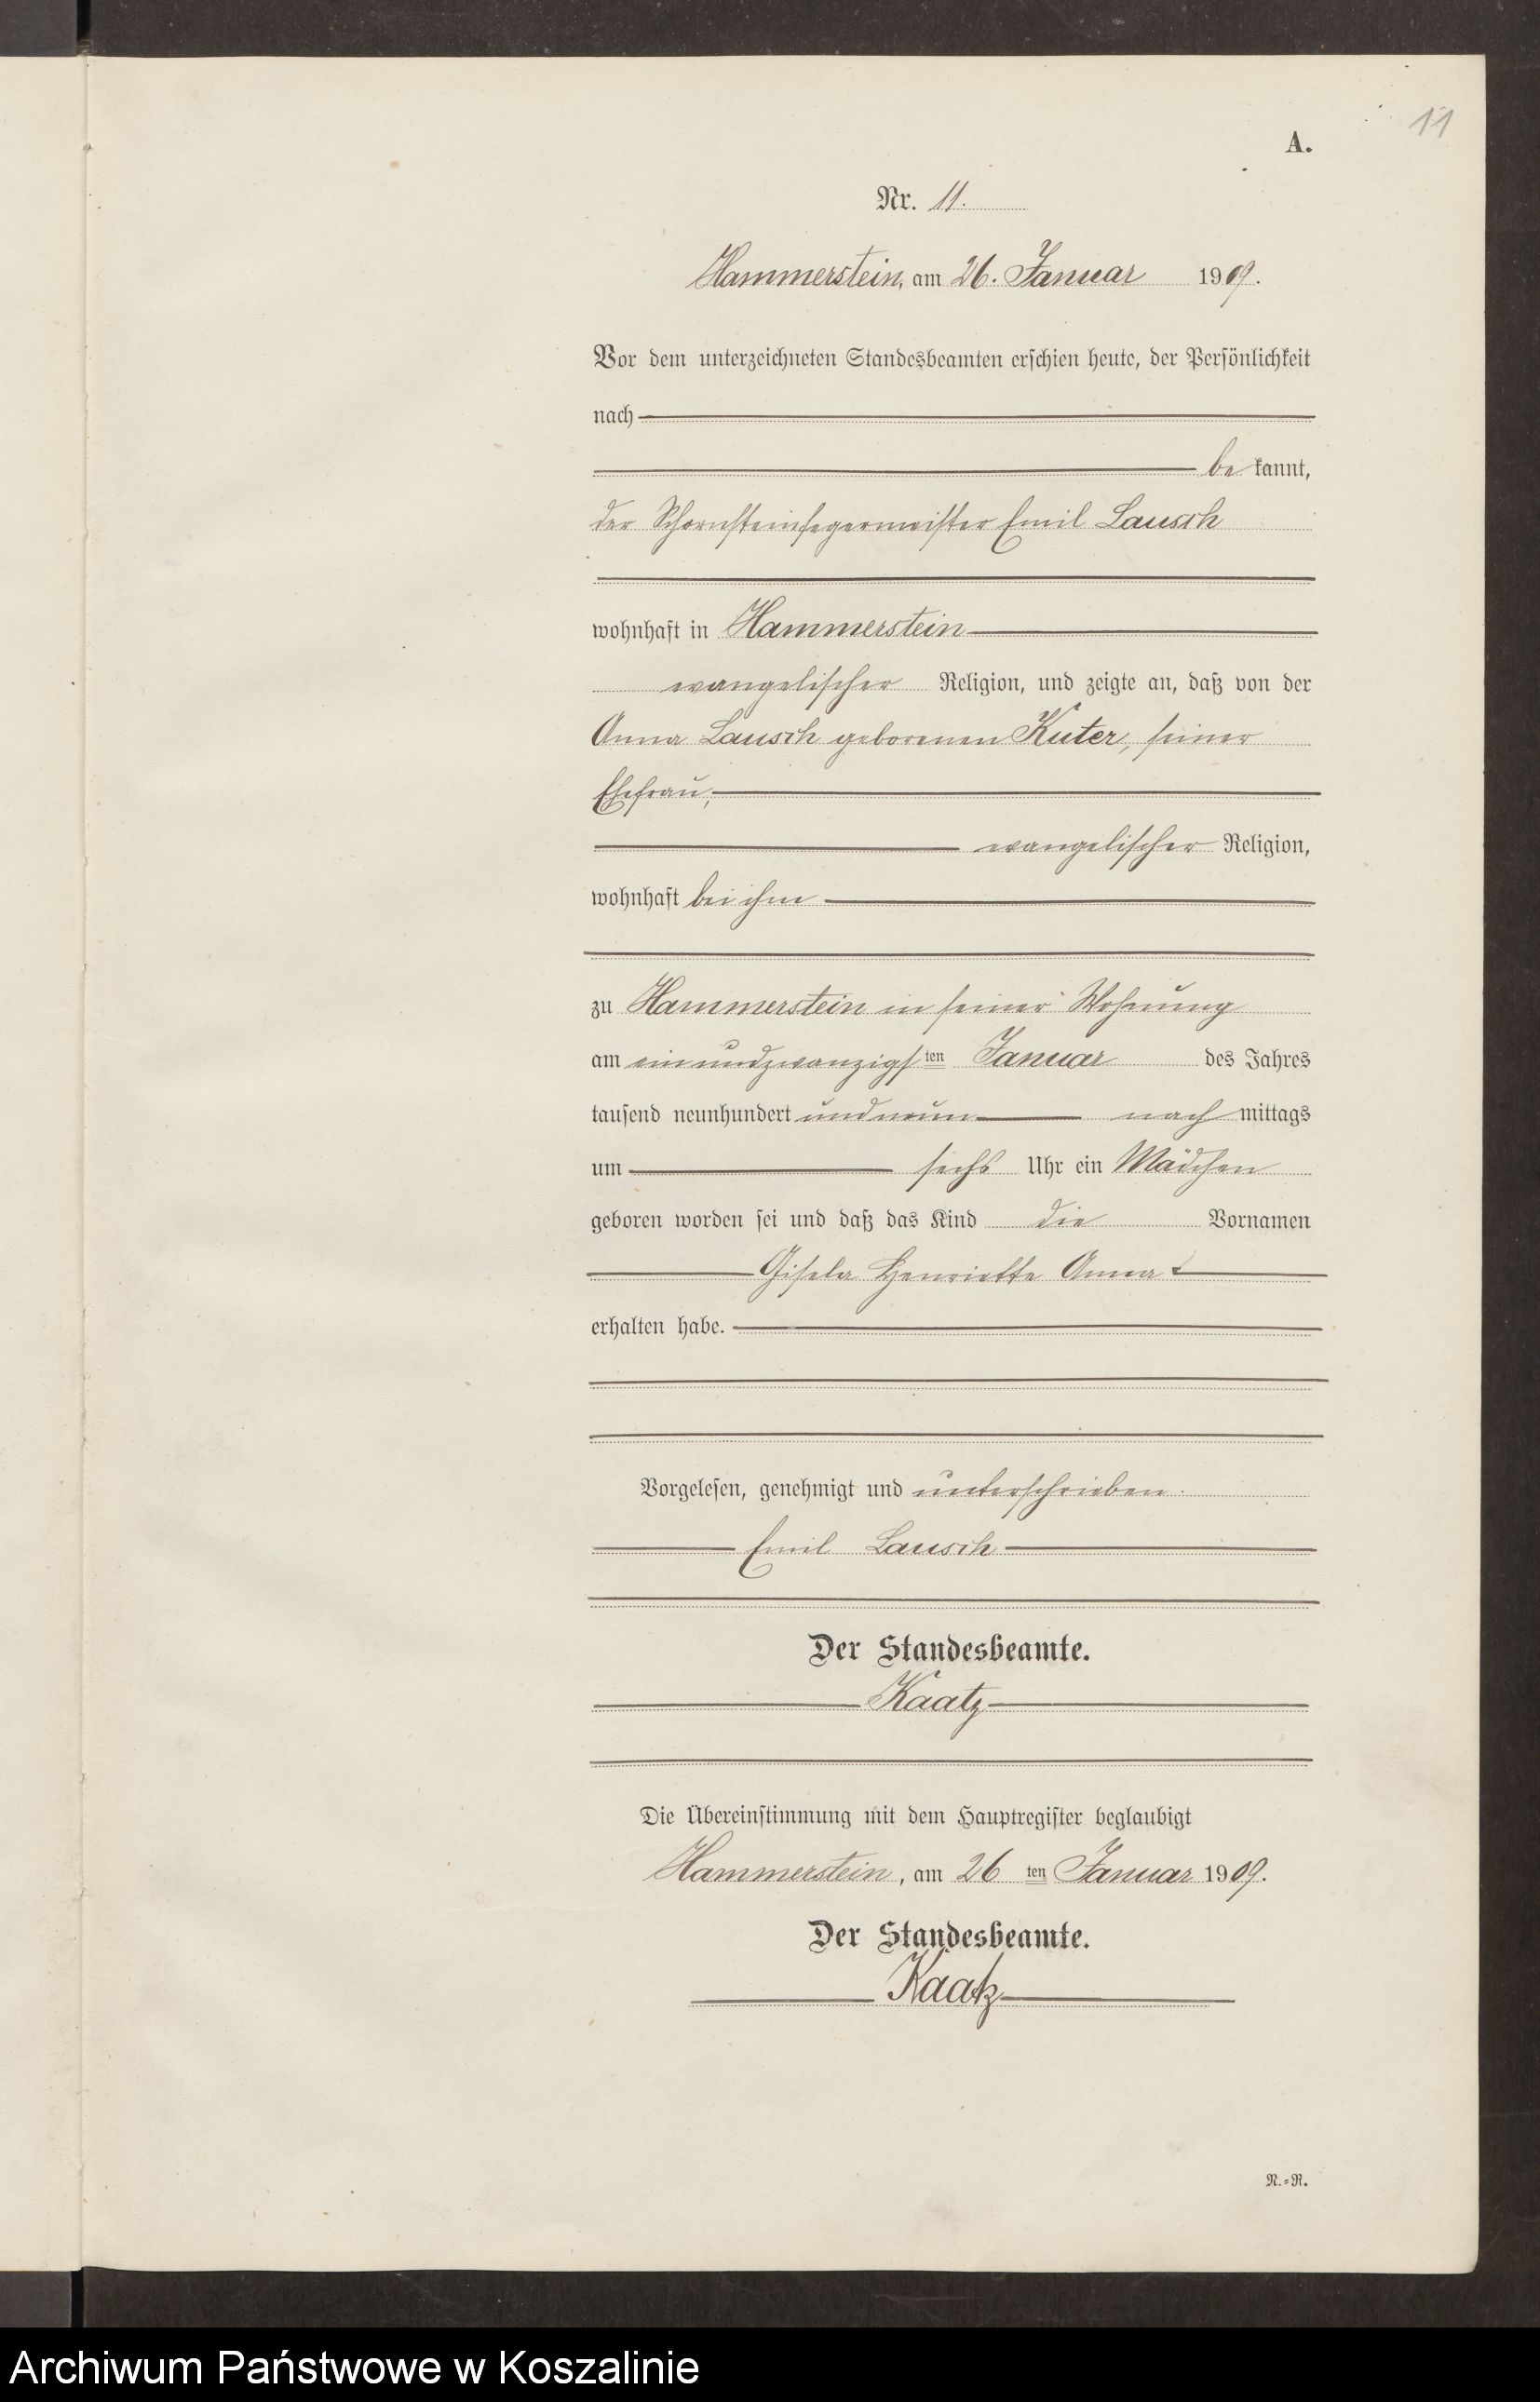 11
A.
Nr. 11.
Hammerstein, am 26. Januar 1909.
Vor dem unterzeichneten Standesbeamten erschien heute, der Persönlichkeit
nach
be kannt,
der Schornsteinfegermeister Emil Lausch
wohnhaft in Hammerstein
evangelischer Religion, und zeigte an, daß von der
Anna Lausch geborenen Kuter, seiner
Ehefrau,
evangelischer Religion,
wohnhaft bei ihm
zu Hammerstein in seiner Wohnung
am einundzwanzigsten Januar des Jahres
tausend neunhundert und neun nach mittags
um sechs Uhr ein Mädchen
geboren worden sei und daß das Kind die Vornamen
Gisela Henriette Anna
erhalten habe.
Vorgelesen, genehmigt und unterschrieben.
Emil Lausch
Der Standesbeamte.
Kaatz
Die Übereinstimmung mit dem Hauptregister beglaubigt
Hammerstein, am 26 ten Januar 1909.
Der Standesbeamte.
Kaatz
N.=R.
Archiwum Państwowe w Koszalinie